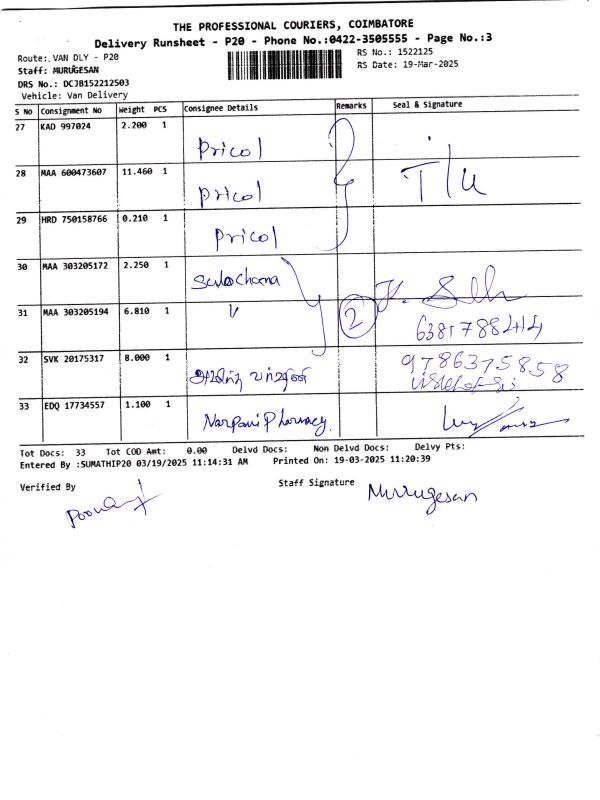 THE PROFESSIONAL COURIERS, COIMBATORE
Delivery Runsheet - P20 - Phone No.:0422-3505555 - Page No.:3
Route: VAN DLY - P20
RS No.: 1522125
Staff: MURUGESAN
RS Date: 19-Mar-2025
DRS No.: DCJB152212503
Vehicle: Van Delivery
S No Consignment No Weight PCS Consignee Details Remarks Seal & Signature
27 KAD 997024 2.200 1 Pricol
28 MAA 600473607 11.460 1 Pricol T/U
29 HRD 750158766 0.210 1 Pricol
30 MAA 303205172 2.250 1 Sulochana
31 MAA 303205194 6.810 1 " 2 6381788414
32 SVK 20175317 8.000 1 9786375858
33 EDQ 17734557 1.100 1 Narpavi Pharmacy
Tot Docs: 33 Tot COD Amt: 0.00 Delvd Docs: Non Delvd Docs: Delvy Pts:
Entered By :SUMATHIP20 03/19/2025 11:14:31 AM Printed On: 19-03-2025 11:20:39
Verified By
Staff Signature Murugesan